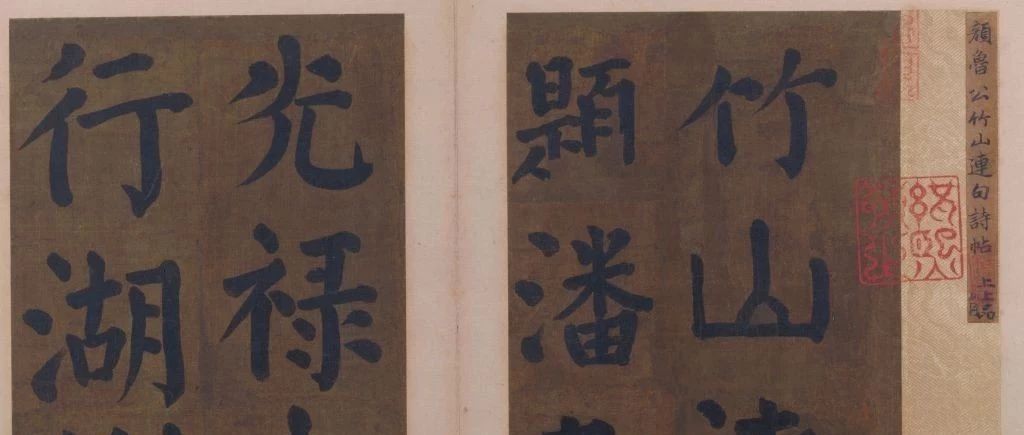 顔魯公竹山連句詩帖 上上品
竹山
題潘
光禄
行湖